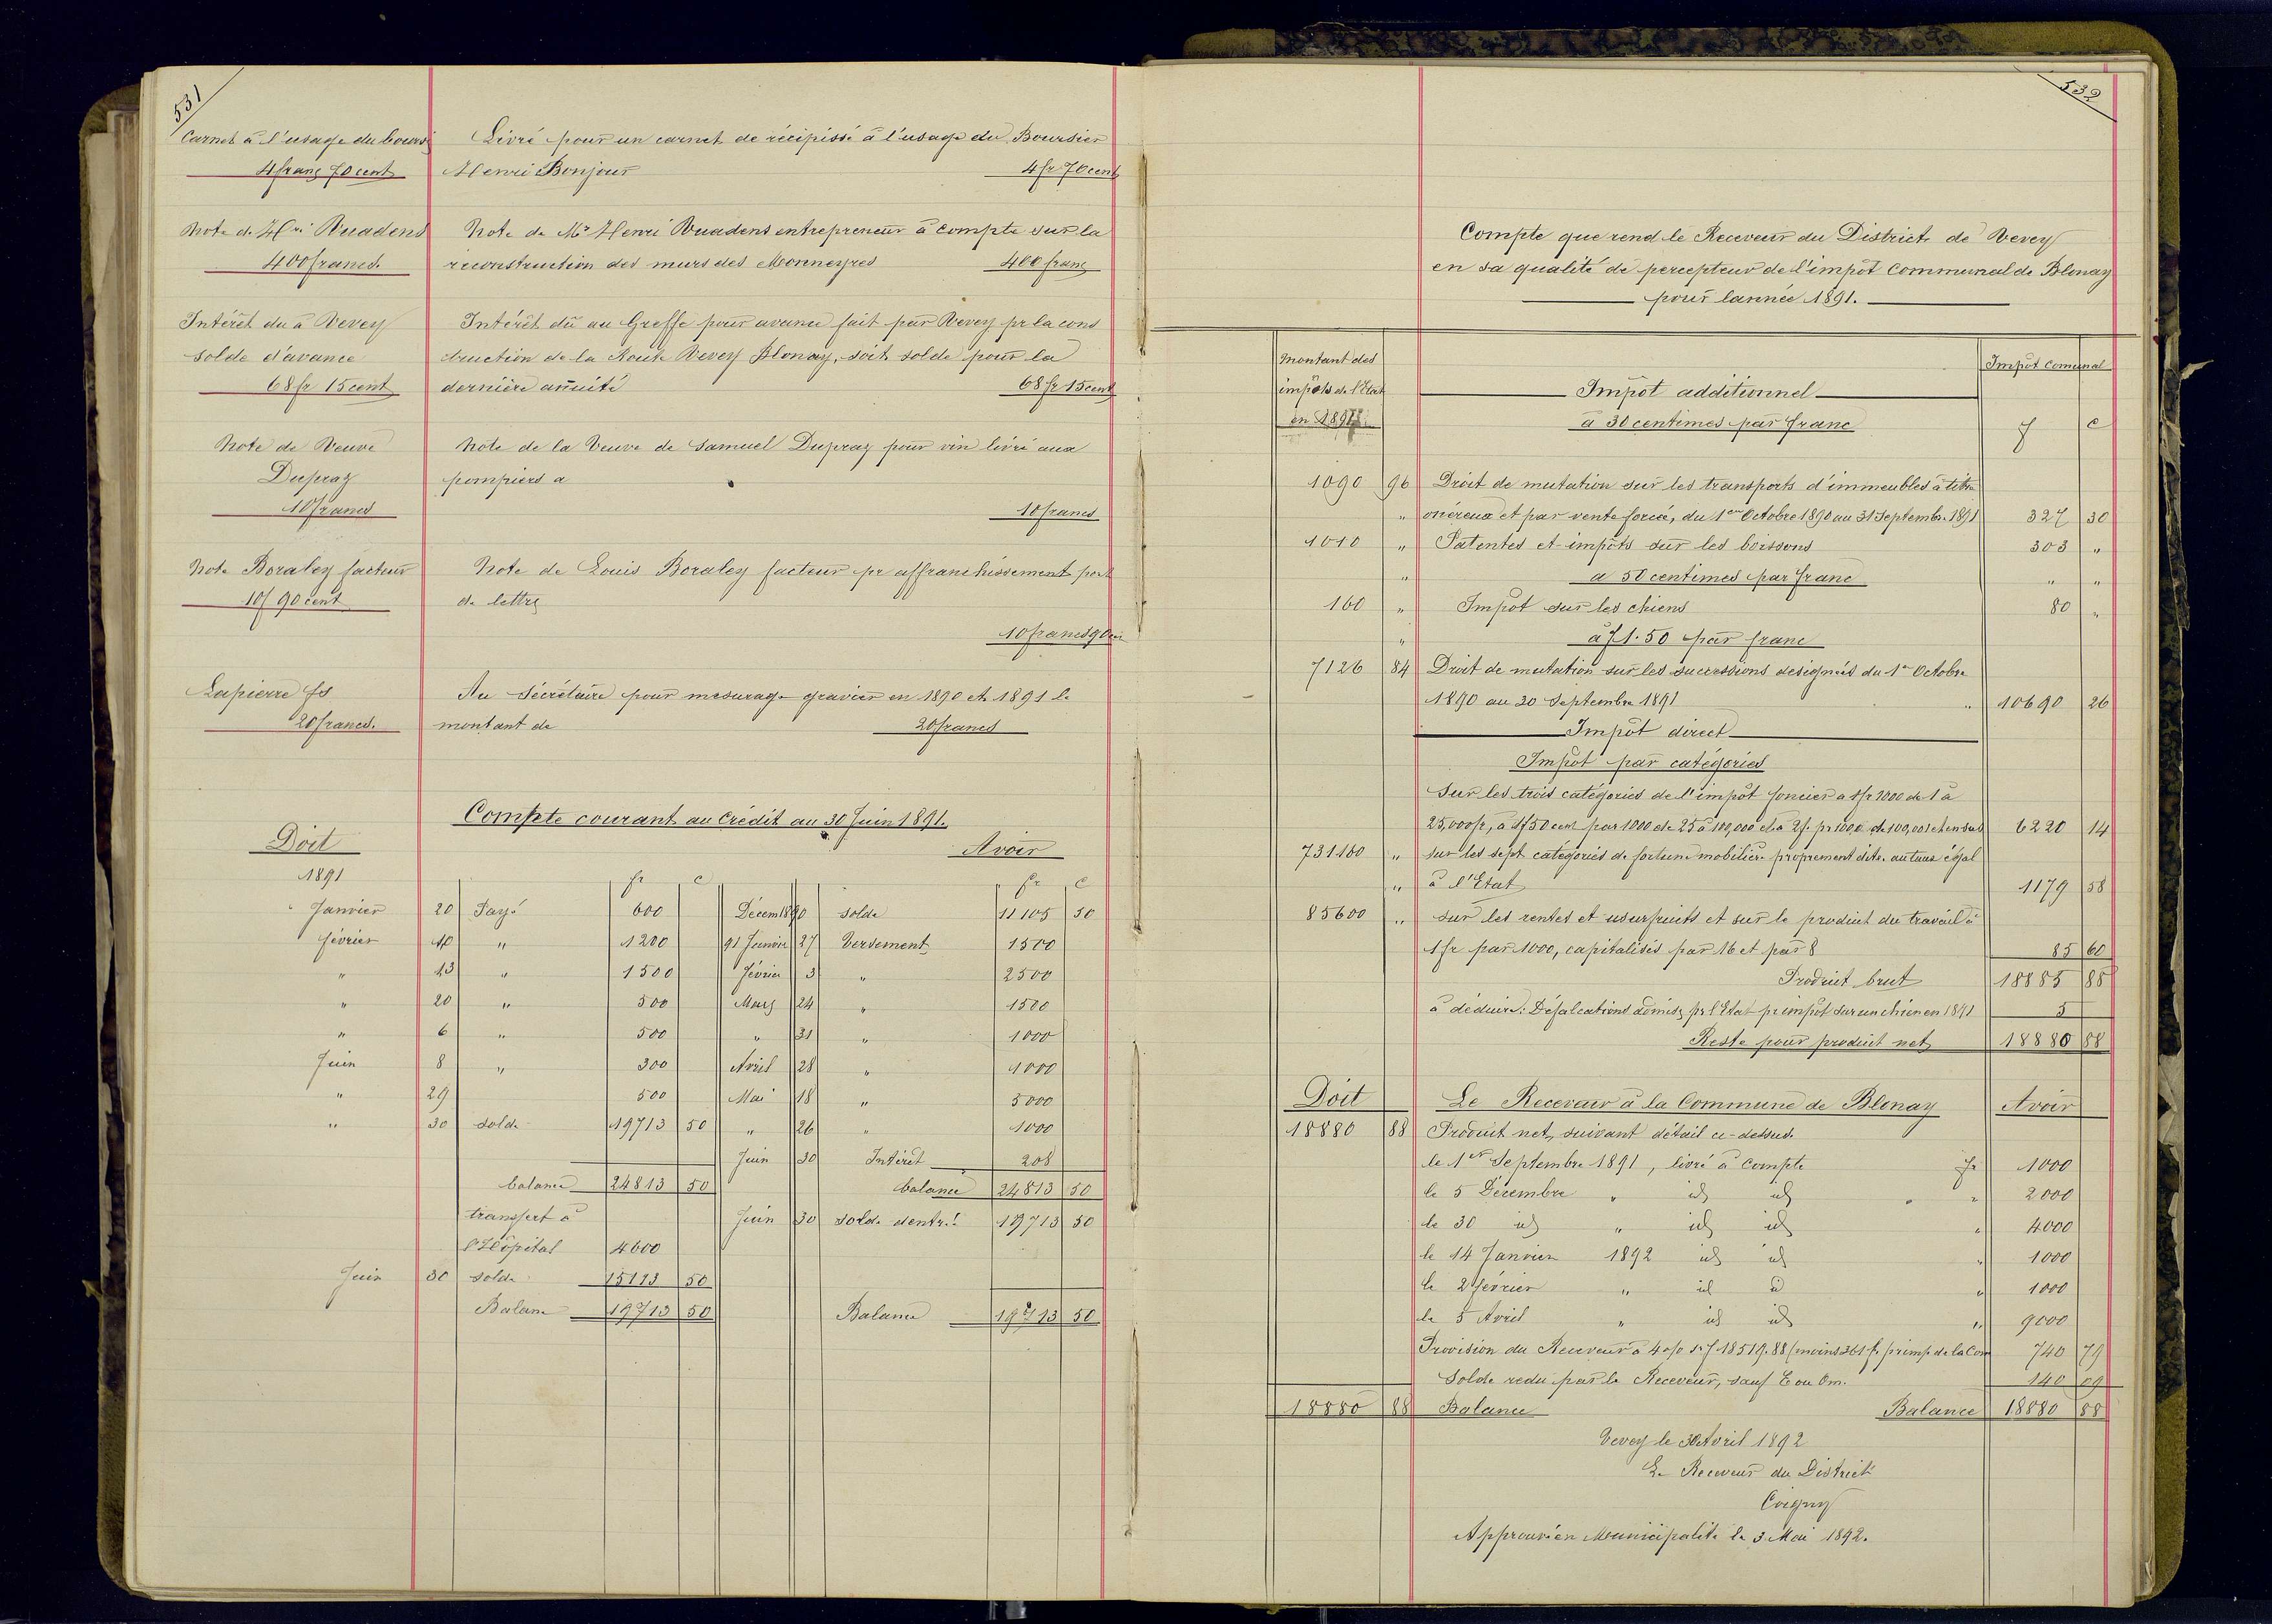 531
Carnet à l'usage du boursi
4 franc 70 cent
Livré pour un carnet de récipissé à l'usage du Boursier
Henri Bonjour 4 fr 70 cent
Note de Hri Vuadens
400 francs.
Note de Mr Henri Vuadens entrepreneur à compte sur la
reconstruction des murs des Monneyres 400 franc
Intérêt du à Vevey
solde d'avance
68 fr 15 cent
Intérêt dû au Greffe pour avance fait par Vevey pr la cons
truction de la Route Vevey Blonay, soit solde pour la
dernière annuité 68 fr 15 cent
Note de Veuve
Dupraz
10 francs
Note de la Veuve de Samuel Dupraz pour vin livré aux
pompiers a
10 francs
Note Boraley facteur
10f 90 cent
Note de Louis Boraley facteur pr affranchissement port
de lettre
10 francs 90
Lapierre fs
20 francs.
Au Sécrétaire pour mesurage gravier en 1890 et 1891 le
montant de 20 francs
Compte courant au Crédit au 30 Juin 1891.
Doit Avoir
1891
fr c fr c
Janvier 20 Payé 600 Décem 1890 solde 11105 50
février 10 " 1200 91 Janvier 27 Versement 1500
" 13 " 1500 février 3 " 2500
" 20 " 500 Mars 24 " 1500
" 6 " 500 " 31 " 1000
Juin 8 " 300 Avril 28 " 1000
" 29 500 Mai 18 " 5000
" 30 solde 19713 50 " 26 " 1000
Juin 30 Intérêt 208
balance 24813 50 balance 24813 50
transfert à Juin 30 solde d'entr. 19713 50
l'Hôpital 4600
Juin 30 solde 15113 50
Balance 19713 50 Balance 19713 50
532
Compte que rend le Receveur du District de Vevey
en sa qualité de percepteur de l'impôt Communal de Blonay
pour l'année 1891.
Montant des
impôts de l'Etat
en 1891
Impôt comunal
Impôt additionnel
à 30 centimes par franc f c
1090 96 Droit de mutation sur les transports d'immeubles à titre
" onéreux et par vente forcée, du 1er Octobre 1890 au 31 Septembre 1891 327 30
1010 " Patentes et impôts sur les boissons 303 "
" a 50 centimes par franc " "
160 " Impôt sur les chiens 80 "
" à f 1.50 par franc
7126 84 Droit de mutation sur les successions désignées du 1er Octobre
1890 au 30 Septembre 1891 " 10690 26
Impôt direct
Impôt par catégories
Sur les trois catégories de l'impôt foncier a 1fr 1000 de 1 à
25,000fr, à 1f 50 cent par 1000 de 25 à 100,000 et à 2f. pr 1000 de 100,001 et en sus 6220 14
731160 " sur les sept catégories de fortune mobilière proprement dite. au taux égal
" à l'Etat 1179 58
85600 " sur les rentes et usurfruits et sur le produit du travail à
1 fr par 1000, capitalisés par 16 et par 8 85 60
Produit brut 18885 88
à déduire: Défalcations admises pr l'Etat pr impôt sur un chien en 1891 5
Reste pour produit net 18880 88
Doit Le Receveur à la Commune de Blonay Avoir
18880 88 Produit net, suivant détail ci-dessus.
le 1er Septembre 1891, livré à compte fr 1000
le 5 Décembre " id id " 2000
le 30 id " id id " 4000
le 14 Janvier 1892 id id " 1000
le 2 février " id id " 1000
le 5 Avril " id id " 9000
Provision du Receveur à 4 o/o s. f 18519.88 (moins 361 f. pr imp de la Com 740 79
Solde redu par le Receveur, sauf E ou Om. 140 09
18880 88 Balance Balance 18880 88
Vevey le 30 Avril 1892
Le Receveur du District
Approuvé en Municipalité le 3 Mai 1892.